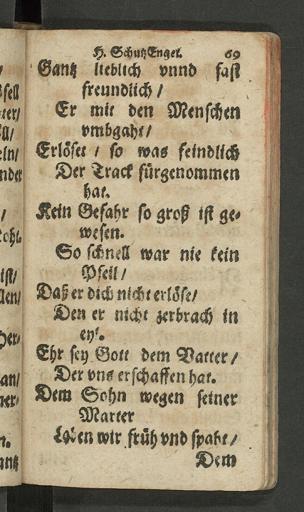 H. SchutzEngel. 69
Gantz lieblich vnnd fast
freundlich /
Er mit den Menschen
vmbgaht /
Erlöset / so was feindlich
Der Track fürgenommen
hat.
Kein Gefahr so groß ist ge-
wesen.
So schnell war nie kein
Pfeil /
Daß er dich nicht erlöse /
Den er nicht zerbrach in
eyl.
Ehr sey Gott dem Vatter /
Der vns erschaffen hat.
Dem Sohn wegen seiner
Marter
Loben wir früh vnd spaht /
Dem